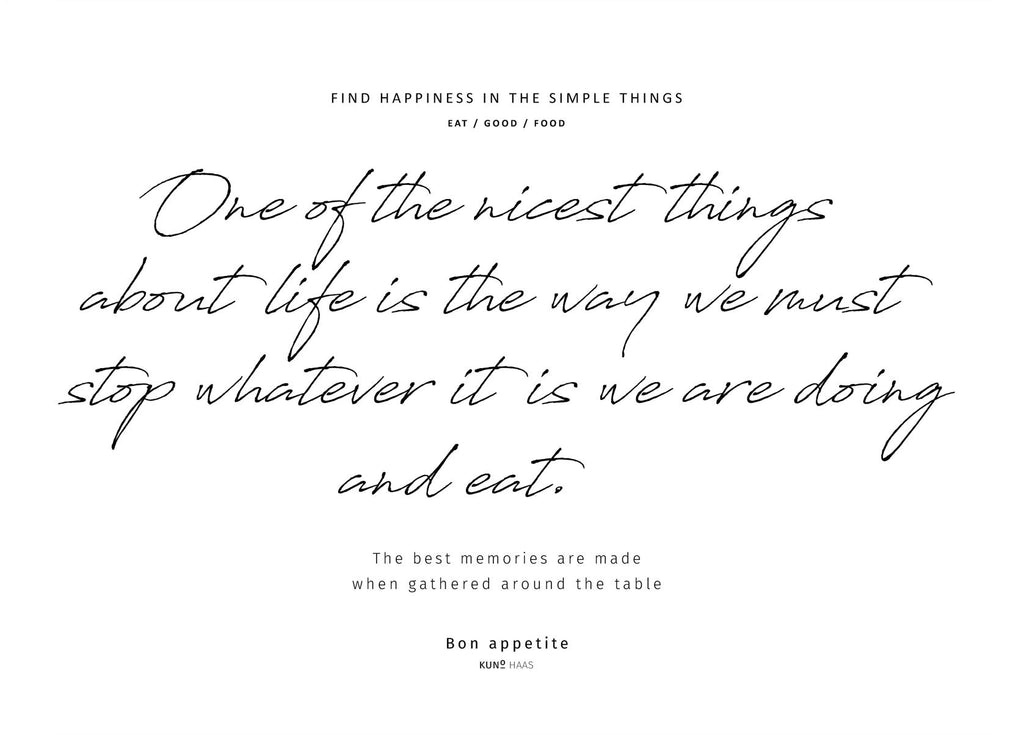 FIND HAPPINESS IN THE SIMPLE THINGS
EAT / GOOD / FOOD
One of the nicest things
about life is the way we must
stop whatever it is we are doing
and eat.
The best memories are made
when gathered around the table
Bon appetite
KUNº HAAS